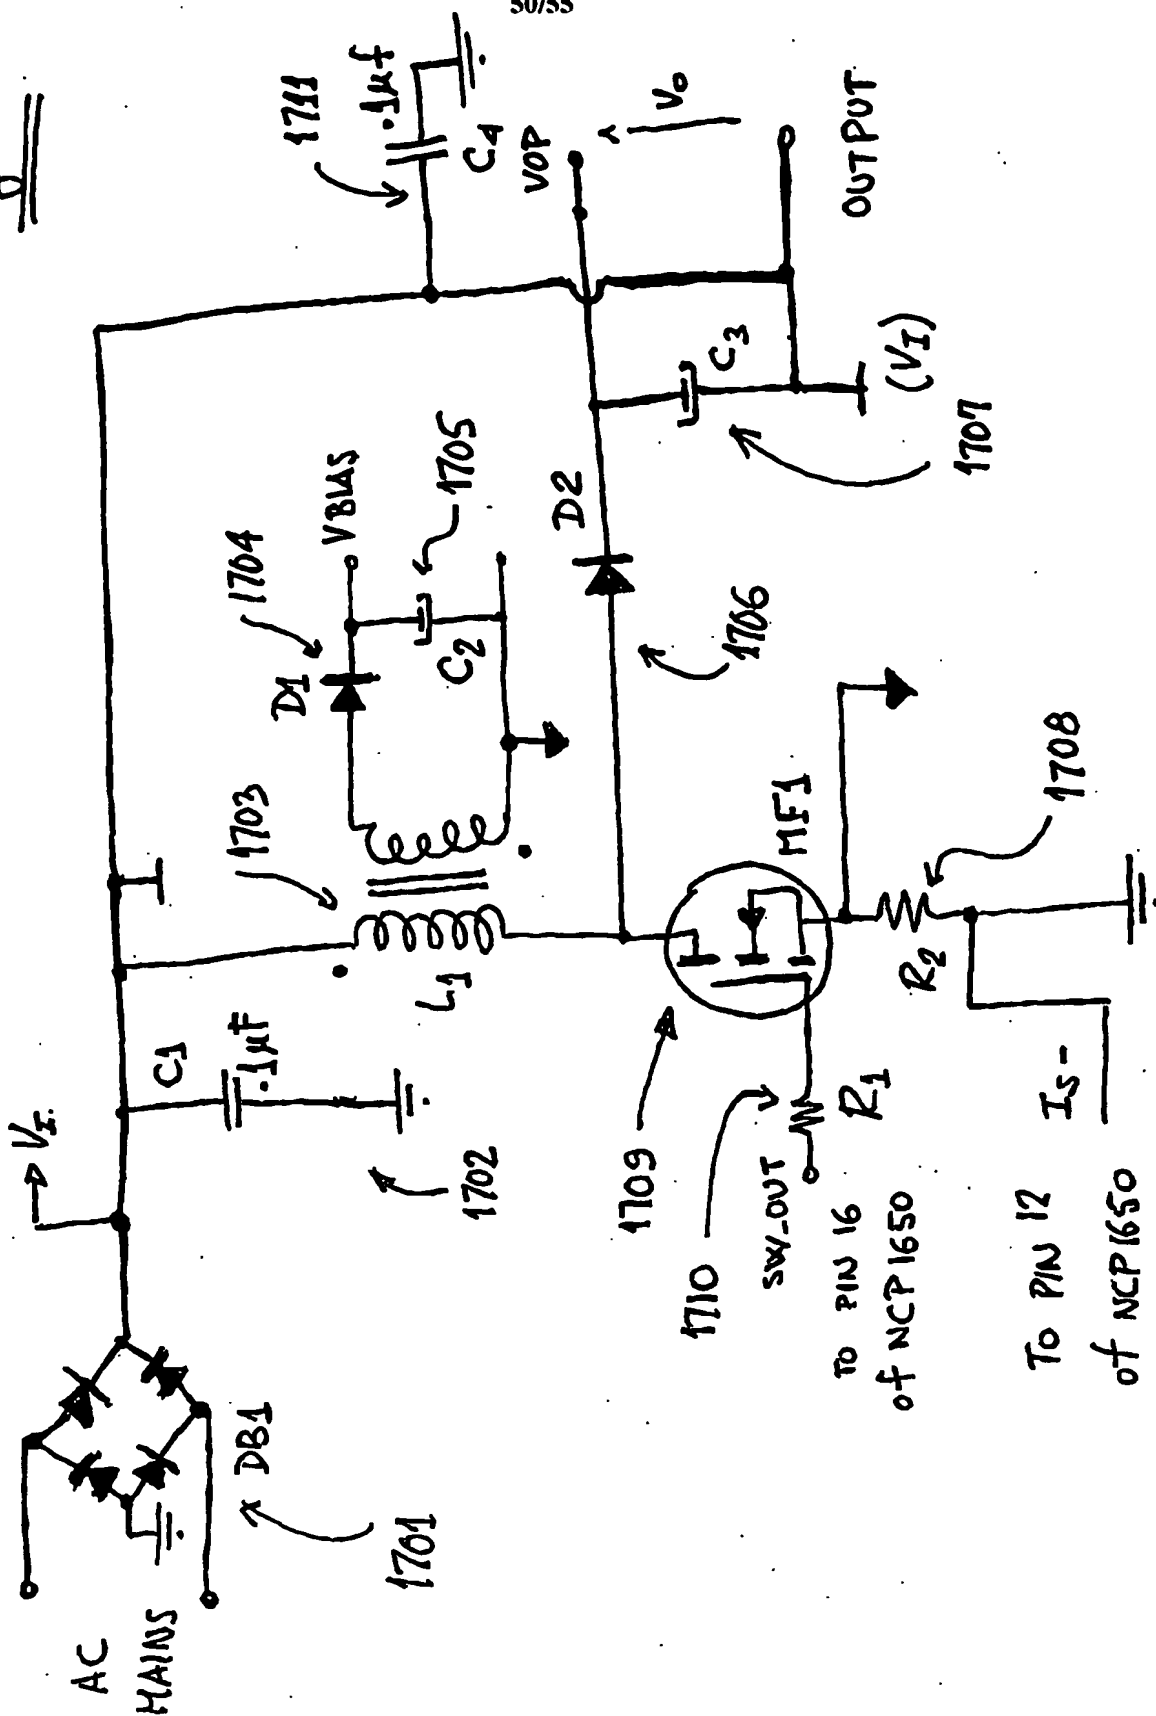 50/55
AC
MAINS
DB1
1701
VI.
C1
.1µF
1702
1703
L1
D1
1704
VBIAS
C2
1705
D2
1706
1711
.1µf
C4
VOP
Vo
OUTPUT
C3
(VI)
1707
MF1
1709
1710
SW_OUT
R1
TO PIN 16
of NCP1650
R2
1708
IS-
TO PIN 12
of NCP1650